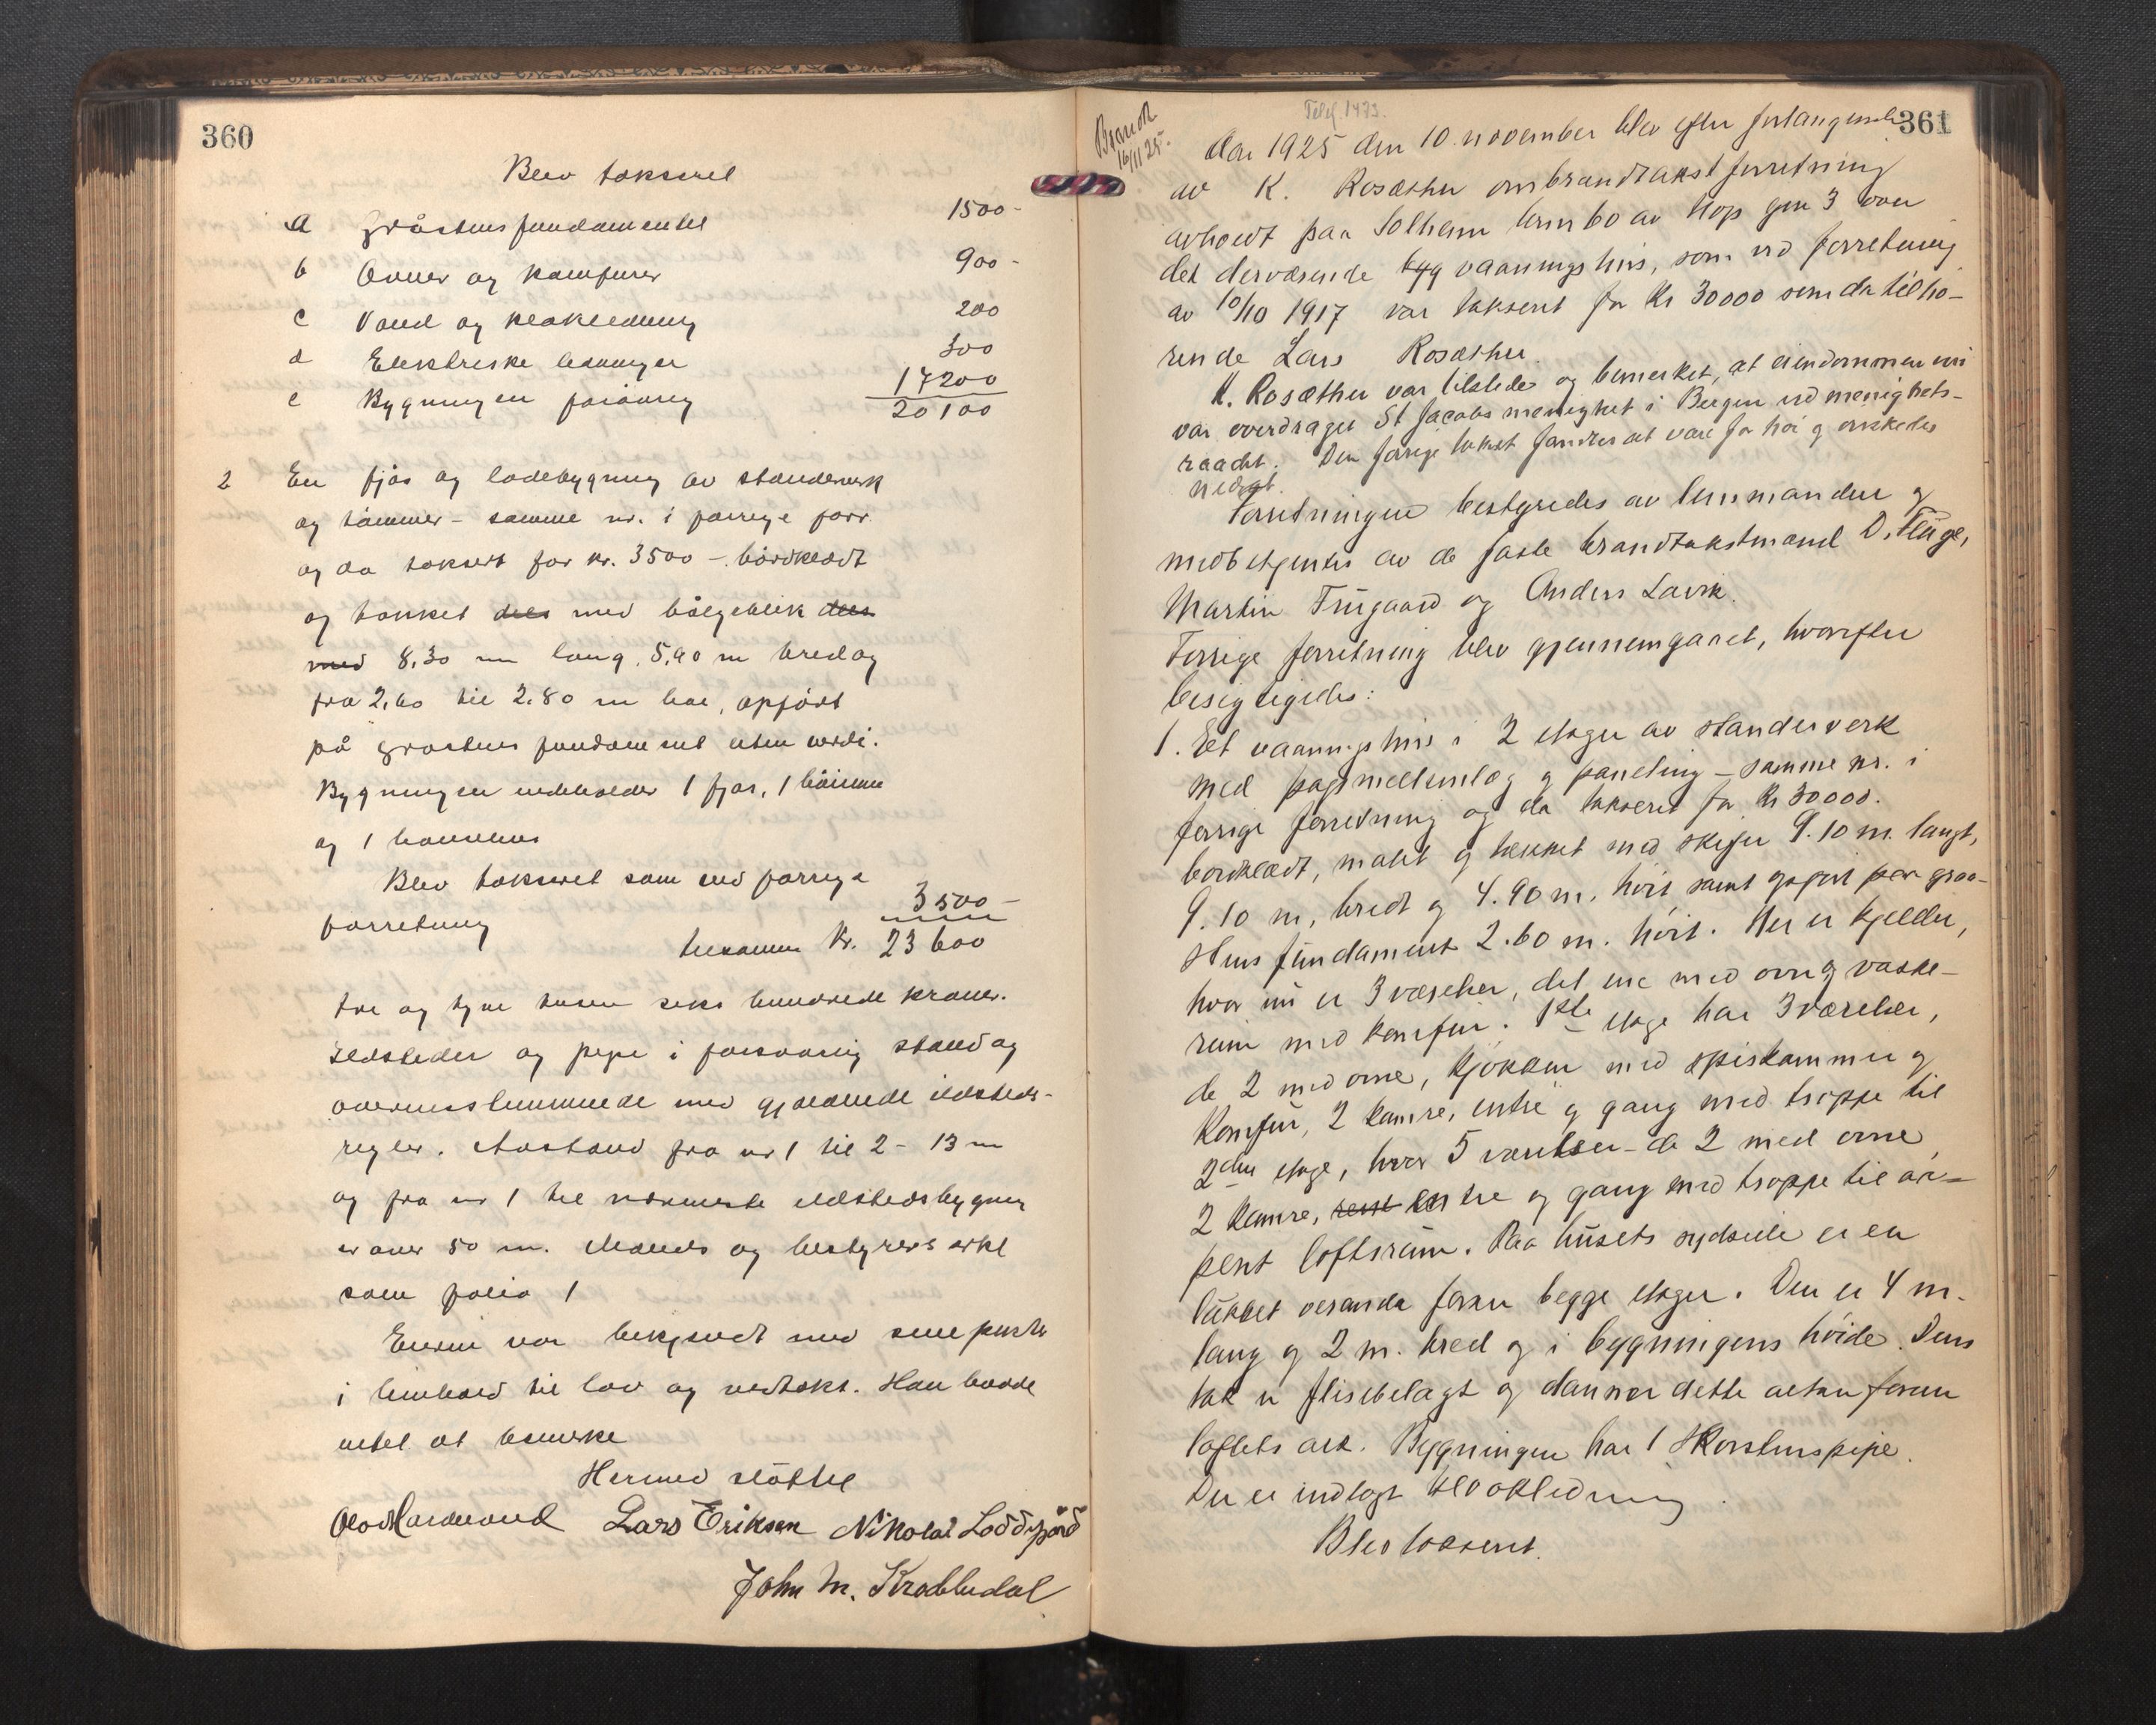 360
Blev taksert
a Gråstensfundamentet 1500-
b Ovner og komfurer 900-
c Vand og kloakledning 200
d Elektriske ledninger 300
e Bygningen forøvrig 17200
20100
2 En fjøs og ladebygning av standerverk
og tømmer - samme nr. i forrige forr.
og da taksert for kr. 3500 - bordklædt
og tækket dels med bølgeblik dels
med 8,30 m lang, 5,90 m bred og
fra 2,60 til 2.80 m høi, opført
på gråstens fundament uten verdi.
Bygningen indeholder 1 fjøs, 1 høirum
og 1 hønsehus
Blev taksert som ved forrige
forretning 3500-
tilsammen Kr. 23600
tre og tyve tusen seks hundrede kroner.
Ildsteder og pipe i forsvarlig stand og
overensstemmende med gjældende ildsteds-
regler. Avstand fra nr 1 til 2 - 13 m
og fra nr 1 til nærmeste ildstedsbygning
er over 50 m. Mænds og bestyrers erkl
som folio 1
Eieren var bekjendt med sine pligter
i henhold til lov og vedtekt. Han havde
intet at bemerke
Hermed sluttet
Lars Eriksen Nikolai Loddefjord
John M. Krabbedal
361
Telef. 1473.
Brandt
16/11 25.
Aar 1925 den 10. november blev efter forlangende
av K. Rosæther ombrandtakstforretning
avholdt paa Solheim brnr 60 av Hop gnr 3 over
det derværende byg vaaningshus, som ved forretning
av 10/10 1917 var taksert for Kr 30000 som da tilhø-
rende Lars Rosæther.
K. Rosæther var tilstede og bemerket, at eiendommen nu
var overdraget St Jacobs menighet i Bergen ved menighets-
raadet. Den forrige takst fandtes at være for høi og ønskedes
nedsat.
Forretningen bestyredes av lensmanden og
medbetjentes av de faste brandtakstmænd D. Fluge,
Martin Trugaard og Anders Lavik.
Forrige forretning blev gjennemgaaet, hvorefter
besigtigedes:
1. Et vaaningshus i 2 etager av standerverk
med papmellemlæg og paneling - samme nr. i
forrige forretning og da taksert for Kr 30000.
bordklædt, malet og tækket med skifer 9.10 m. langt,
9.10 m, bredt og 4.90 m. høit samt opført paa graa-
stens fundament 2.60 m. høit. Her er kjelder,
hvor nu er 3 værelser, det ene med ovn og vaske-
rum med komfur. 1ste etage har 3 værelser,
de 2 med ovne, kjøkken med spiskammer og
komfur, 2 kamre, entre og gang med trappe til
2den etage, hvor 5 værelser - de 2 med ovne,
2 kamre, entre og gang med trappe til aa-
pent loftsrum. Paa husets sydside er en
lukket veranda foran begge etager. Den er 4 m.
lang og 2 m. bred og i bygningens høide. Dens
tak er flisebelagt og danner dette altan foran
loftets ark. Bygningen har 1 skorstenspipe.
Der er indlagt kloakledning.
Blev taksert.